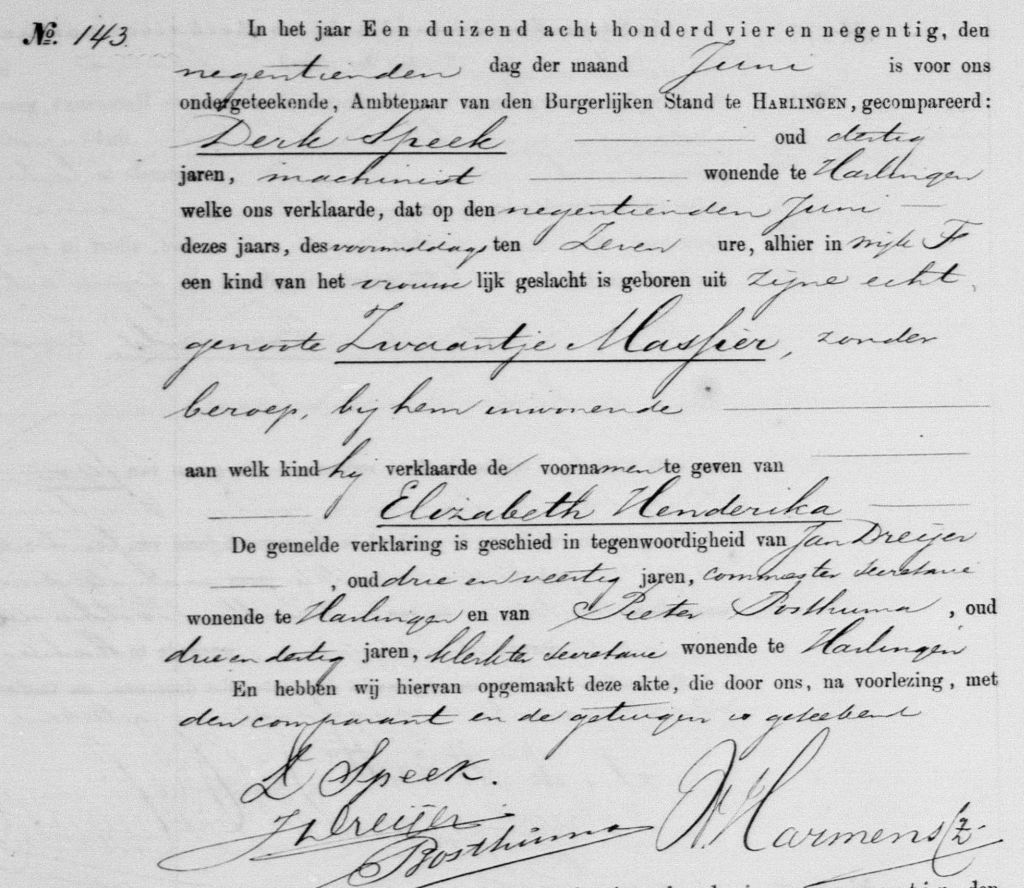 No. 143.
In het jaar Een duizend acht honderd vier en negentig, den
negentienden dag der maand Juni is voor ons
ondergeteekende, Ambtenaar van den Burgerlijken Stand te HARLINGEN, gecompareerd:
Derk Speek oud dertig
jaren, machinist wonende te Harlingen
welke ons verklaarde, dat op den negentienden Juni
dezes jaars, des voormiddags ten Zeven ure, alhier in wijk F
een kind van het vrouwelijk geslacht is geboren uit zijne echt
genoote Zwaantje Massier, zonder
beroep, bij hem inwonende
aan welk kind hij verklaarde de voornamen te geven van
Elizabeth Henderika
De gemelde verklaring is geschied in tegenwoordigheid van Jan Dreijer
, oud drie en veertig jaren, commies ter secretarie
wonende te Harlingen en van Pieter Posthuma, oud
drie en dertig jaren, klerk ter secretarie wonende te Harlingen
En hebben wij hiervan opgemaakt deze akte, die door ons, na voorlezing, met
den comparant en de getuigen is geteekend
D Speek.
J Dreijer
P Posthuma
Harmens Z.